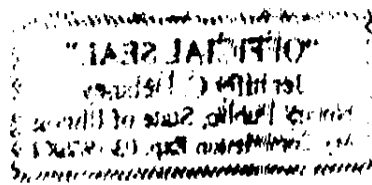 "OFFICIAL SEAL"
Jennifer C.
Notary Public, State of Illinois
My Commission Exp. 03